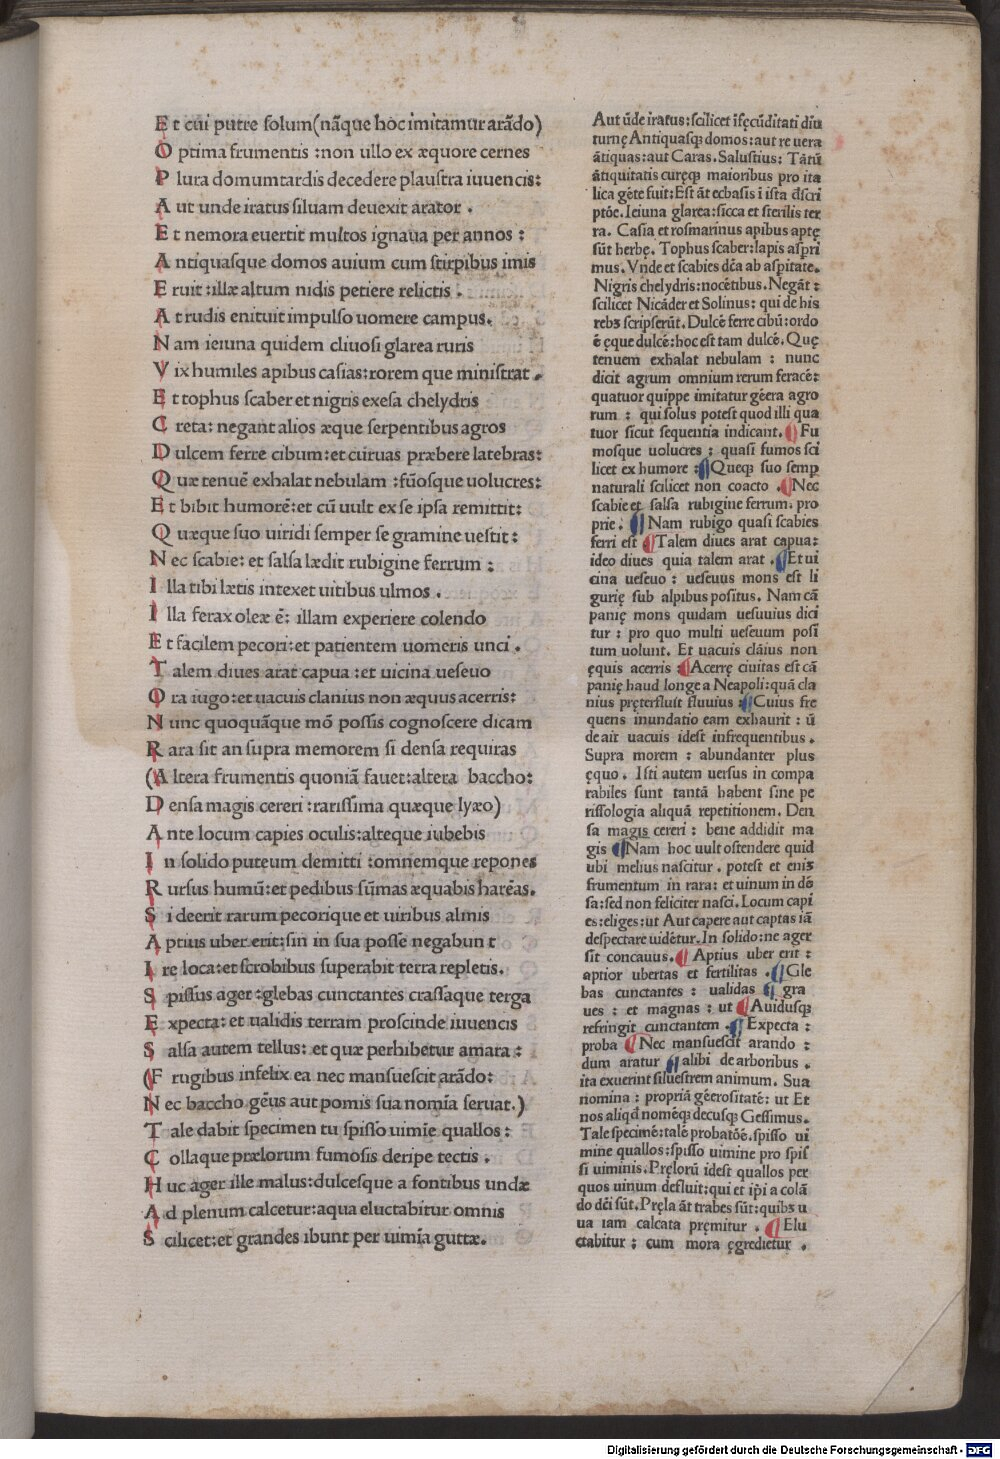 Et cui putre solum(nãque hoc imitamur arãdo)
Optima frumentis :non ullo ex æquore cernes
Plura domum tardis decedere plaustra iuuencis:
Aut unde iratus siluam deuexit arator .
Et nemora euertit multos ignaua per annos :
Antiquasque domos auium cum stirpibus imis
Eruit :illæ altum nidis petiere relictis .
At rudis enituit impulso uomere campus.
Nam ieiuna quidem cliuosi glarea ruris
Vix humiles apibus casias:rorem que ministrat .
Et tophus scaber et nigris exesa chelydris
Creta: negant alios æque serpentibus agros
Dulcem ferre cibum:et curuas præbere latebras:
Quæ tenuẽ exhalat nebulam :fũosque uolucres:
Et bibit humorẽ:et cũ uult ex se ipsa remittit:
Quæque suo uiridi semper se gramine uestit :
Nec scabie: et salsa lædit rubigine ferrum :
Illa tibi lætis intexet uitibus ulmos .
Illa ferax oleæ ẽ: illam experiere colendo
Et facilem pecori:et patientem uomeris unci .
Talem diues arat capua :et uicina ueseuo
Ora iugo:et uacuis clanius non æquus acerris:
Nunc quoquãque mõ possis cognoscere dicam
Rara sit an supra memorem si densa requiras
(Altera frumentis quoniã fauet:altera baccho:
Densa magis cereri :rarissima quæque lyæo)
Ante locum capies oculis:alteque iubebis
In solido puteum demitti :omnemque repones
Rursus humũ:et pedibus sũmas æquabis harẽas.
Si deerit rarum pecorique et uiribus almis
Aptius uber erit:sin in sua posse negabun t
Ire loca:et scrobibus superabit terra repletis.
Spissus ager :glebas cunctantes crassaque terga
Expecta: et ualidis terram proscinde iuuencis
Salsa autem tellus: et quæ perhibetur amara :
(Frugibus infelix ea nec mansuescit arãdo:
Nec baccho gẽus aut pomis sua nomĩa seruat.)
Tale dabit specimen tu spisso uimĩe quallos :
Collaque prælorum fumosis deripe tectis .
Huc ager ille malus:dulcesque a fontibus undæ
Ad plenum calcetur:aqua eluctabitur omnis
Scilicet:et grandes ibunt per uimĩa guttæ.
Aut ũde iratus:scilicet ĩfęcũditati diu
turnę Antiquasqꝫ domos:aut re uera
ãtiquas:aut Caras. Salustius: Tãtũ
ãtiquitatis curęqꝫ maioribus pro ita
lica gẽte fuit: Est ãt ecbasis ĩ ista dscri
ptõe. Ieiuna glarea:sicca et sterilis ter
ra. Casia et rosmarinus apibus aptę
sũt herbę. Tophus scaber:lapis aspri
mus. Vnde et scabies dc̃a ab aspitate.
Nigris chelydris:nocẽtibus. Negãt :
scilicet Nicãder et Solinus: qui de his
rebꝫ scripserũt. Dulcẽ ferre cibũ:ordo
ẽ ęque dulcẽ:hoc est tam dulcẽ. Quę
tenuem exhalat nebulam : nunc
dicit agrum omnium rerum feracẽ:
quatuor quippe imitatur gẽera agro
rum : qui solus potest quod illi qua
tuor sicut sequentia indicant. Fu
mosque uolucres : quasi fumos sci
licet ex humore : Queqꝫ suo semp
naturali scilicet non coacto . Nec
scabie et salsa rubigine ferrum. pro
prie . Nam rubigo quasi scabies
ferri est Talem diues arat capua:
ideo diues quia talem arat . Et ui
cina ueseuo : ueseuus mons est li
gurię sub alpibus positus. Nam cã
panię mons quidam uesuuius dici
tur : pro quo multi ueseuum posi
tum uolunt. Et uacuis clãius non
ęquis acerris : Acerrę ciuitas est cã
panię haud longe a Neapoli:quã cla
nius pręterfluit fluuius : Cuius fre
quens inundatio eam exhaurit : ũ
de ait uacuis idest infrequentibus .
Supra morem : abundanter plus
ęquo . Isti autem uersus in compa
rabiles sunt tantã habent sine pe
rissologia aliquã repetitionem. Den
sa magis cereri : bene addidit ma
gis Nam hoc uult ostendere quid
ubi melius nascitur . potest et enĩꝫ
frumentum in rara: et uinum in dẽ
sa:sed non feliciter nasci. Locum capi
es:eliges:ut Aut capere aut captas iã
despectare uidẽtur. In solido:ne ager
sit concauus. Aptius uber erit :
aptior ubertas et fertilitas . Gle
bas cunctantes : ualidas gra
ues : et magnas : ut Auidusqꝫ
refringit cunctantem . Expecta :
proba Nec mansuescit arando :
dum aratur alibi de arboribus .
ita exuerint siluestrem animum. Sua
nomina : propriã gẽerositatẽ: ut Et
nos aliqd nomẽqꝫ decusqꝫ Gessimus.
Tale specimẽ: talẽ probatõẽ.spisso ui
mine quallos:spisso uimine pro spis
si uiminis. Pręlorũ idest quallos per
quos uinum defluit:qui et ip̃i a colã
do dc̃i sũt. Pręla ãt trabes sũt:quibꝫ u
ua iam calcata pręmitur . Elu
ctabitur : cum mora ęgredietur .
Digitalisierung gefördert durch die Deutsche Forschungsgemeinschaft - DFG